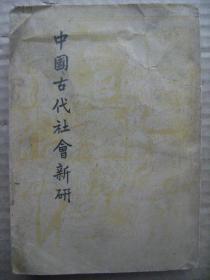 中國古代社會新研